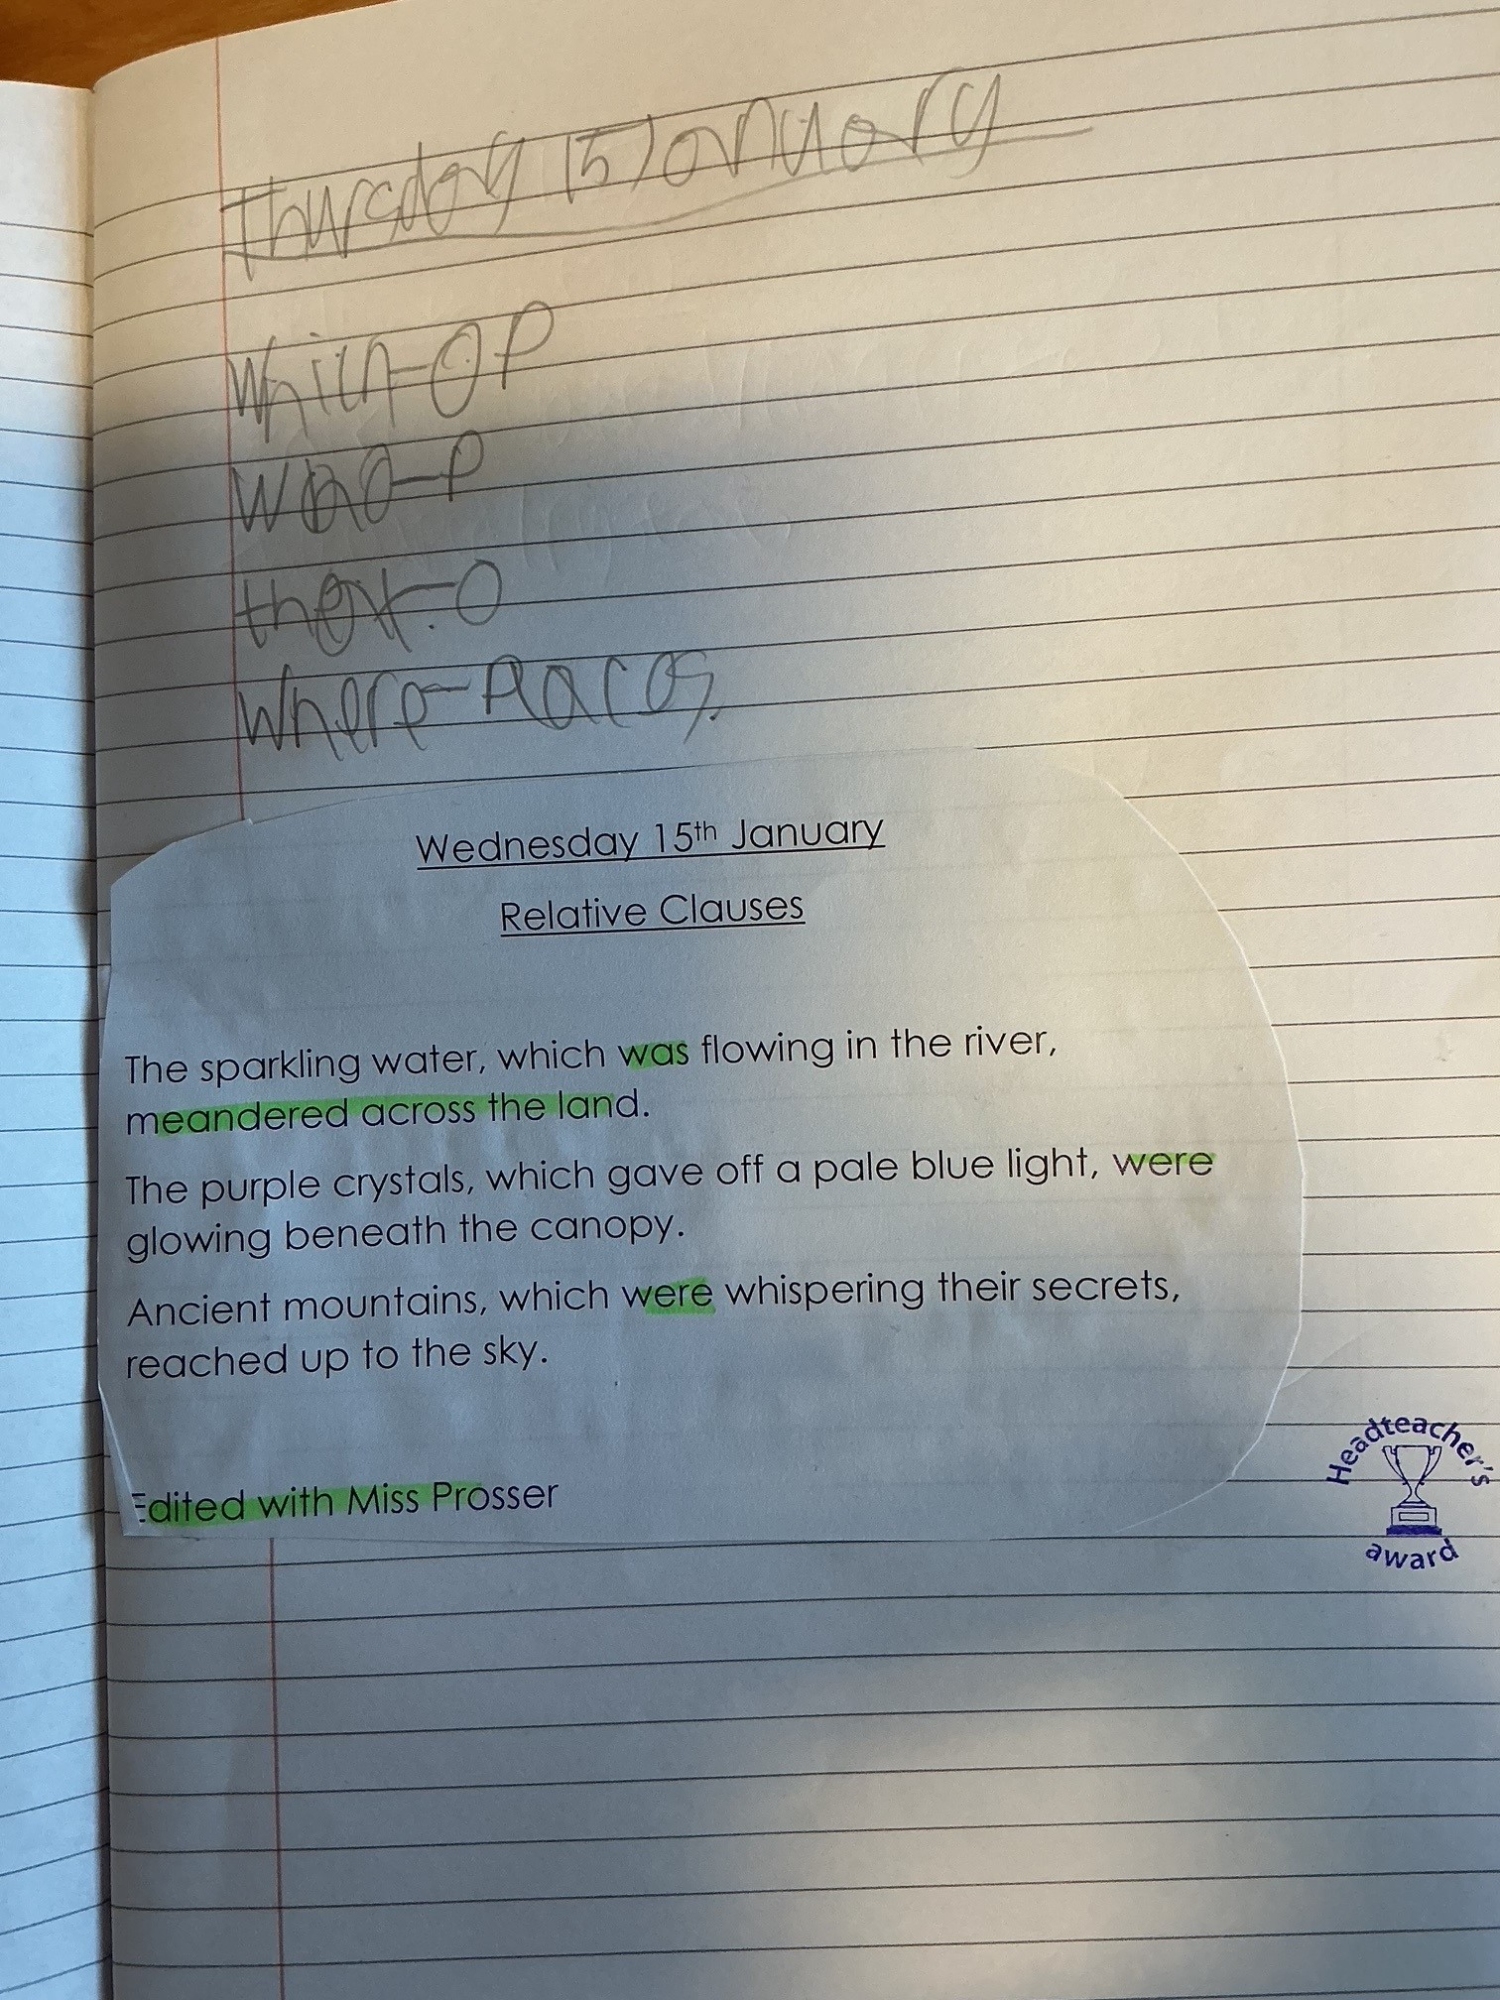 Thursday 15 January
which-OP
who-P
that-O
where-Places
Wednesday 15th January
Relative Clauses
The sparkling water, which was flowing in the river,
meandered across the land.
The purple crystals, which gave off a pale blue light, were
glowing beneath the canopy.
Ancient mountains, which were whispering their secrets,
reached up to the sky.
Edited with Miss Prosser
Headteacher's
award